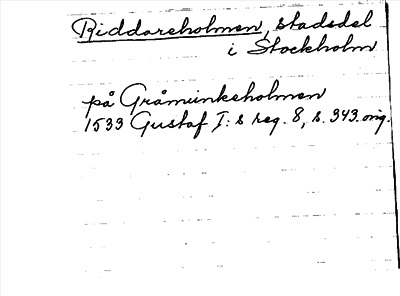 Riddareholmen, stadsdel
i Stockholm
på Gråmunkeholmen
1533 Gustaf I:s reg. 8, s. 343. orig.